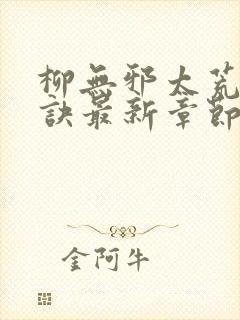 柳無邪太荒
訣最新章節
金阿牛